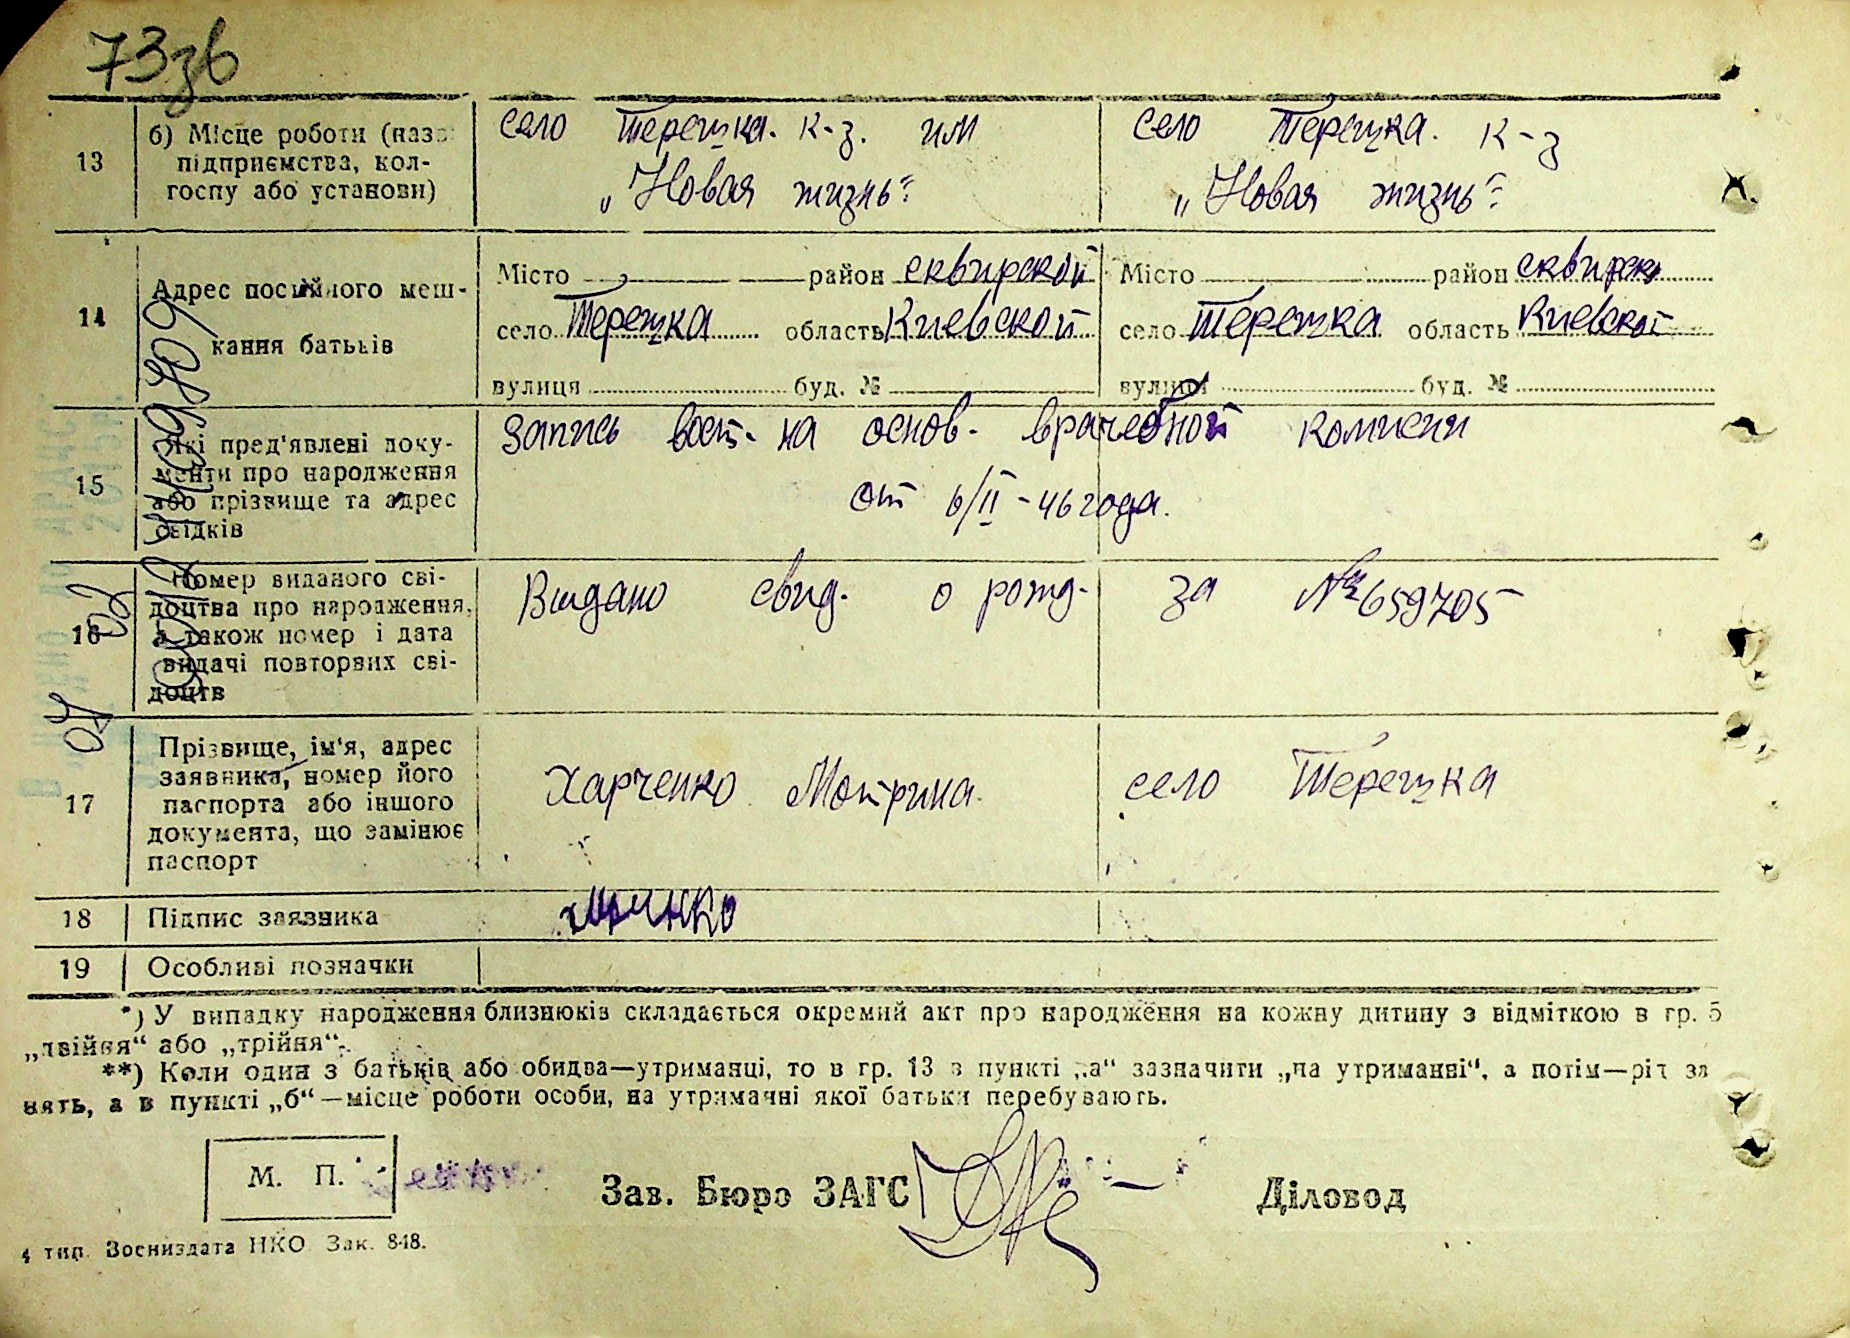 73зв
13
б) Місце роботи (назв
підприємства, кол-
госпу або установи)
село Терешка. К-з. им
„Новая жизнь“
село Терешка. К-з
„Новая жизнь“
14
Адрес постійного меш-
кання батьків
Місто район сквирской
село Терешка область Киевской
вулиця буд. №
Місто район сквирско
село Терешка область Киевской
вулиця буд. №
15
Які пред'явлені доку-
менти про народження
або прізвище та адрес
свідків
Запись вост. на основ. врачебной комисии
от 6/II-46 года.
16
Номер виданого сві-
доцтва про народження,
а також номер і дата
видачі повторних сві-
доцтв
Видано свид. о рожд. за № 659705
17
Прізвище, ім'я, адрес
заявника, номер його
паспорта або іншого
документа, що замінює
паспорт
Харченко Мотрина. село Терешка
18
Підпис заявника
19
Особливі позначки
*) У випадку народження близнюків складається окремий акт про народження на кожну дитину з відміткою в гр. 5
„двійня“ або „трійня“.
**) Коли один з батьків або обидва—утриманці, то в гр. 13 в пункті „а“ зазначити „на утриманні“, а потім—рід за
нять, а в пункті „б“—місце роботи особи, на утриманні якої батьки перебувають.
М. П.
Зав. Бюро ЗАГС
Діловод
4 тип. Воениздата НКО Зак. 848.